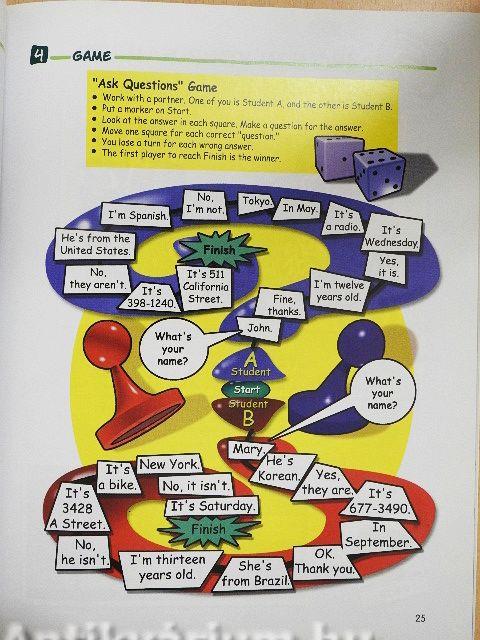 4 GAME
"Ask Questions" Game
• Work with a partner. One of you is Student A, and the other is Student B.
• Put a marker on Start.
• Look at the answer in each square. Make a question for the answer.
• Move one square for each correct "question."
• You lose a turn for each wrong answer.
• The first player to reach Finish is the winner.
What's
your
name?
A
Student
Start
John.
Fine,
thanks.
I'm twelve
years old.
Yes,
it is.
It's
Wednesday.
It's
a radio.
In May.
Tokyo.
No,
I'm not.
I'm Spanish.
He's from the
United States.
No,
they aren't.
It's
398-1240.
It's 511
California
Street.
Finish
What's
your
name?
Student
B
Mary.
He's
Korean.
Yes,
they are.
It's
677-3490.
In
September.
OK.
Thank you.
She's
from Brazil.
I'm thirteen
years old.
No,
he isn't.
It's
3428
A Street.
It's
a bike.
New York.
No, it isn't.
It's Saturday.
Finish
25
Antikvárium.hu